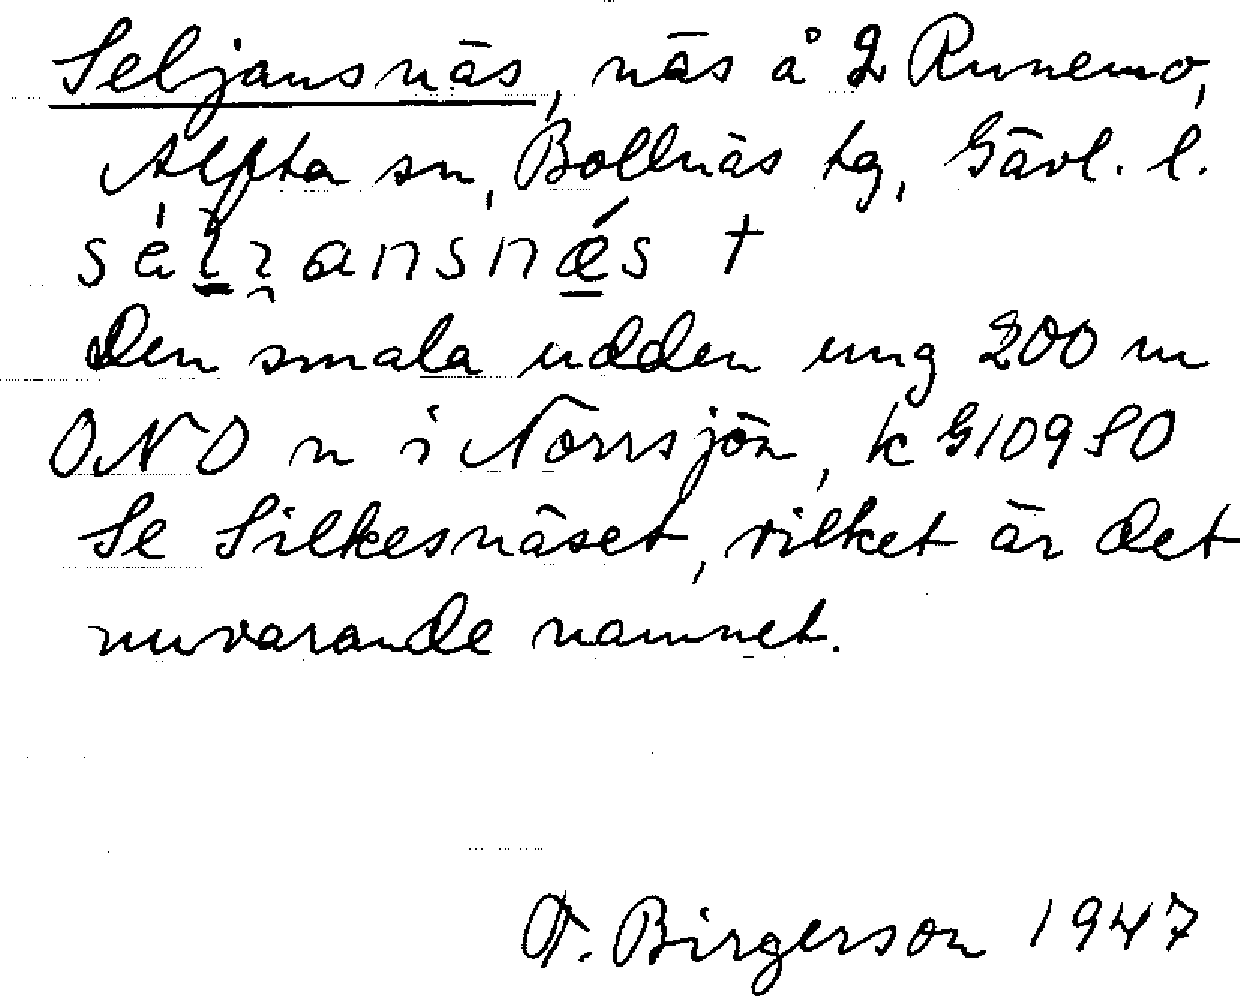 Seljansnäs, näs å 2 Runemo,
Alfta sn, Bollnäs tg, Gävl. l.
Den smala udden ung 200 m
ONO n i Norrsjön, k G10980
Se Silkesnäset, vilket är det
nuvarande namnet.
T. Birgerson 1947